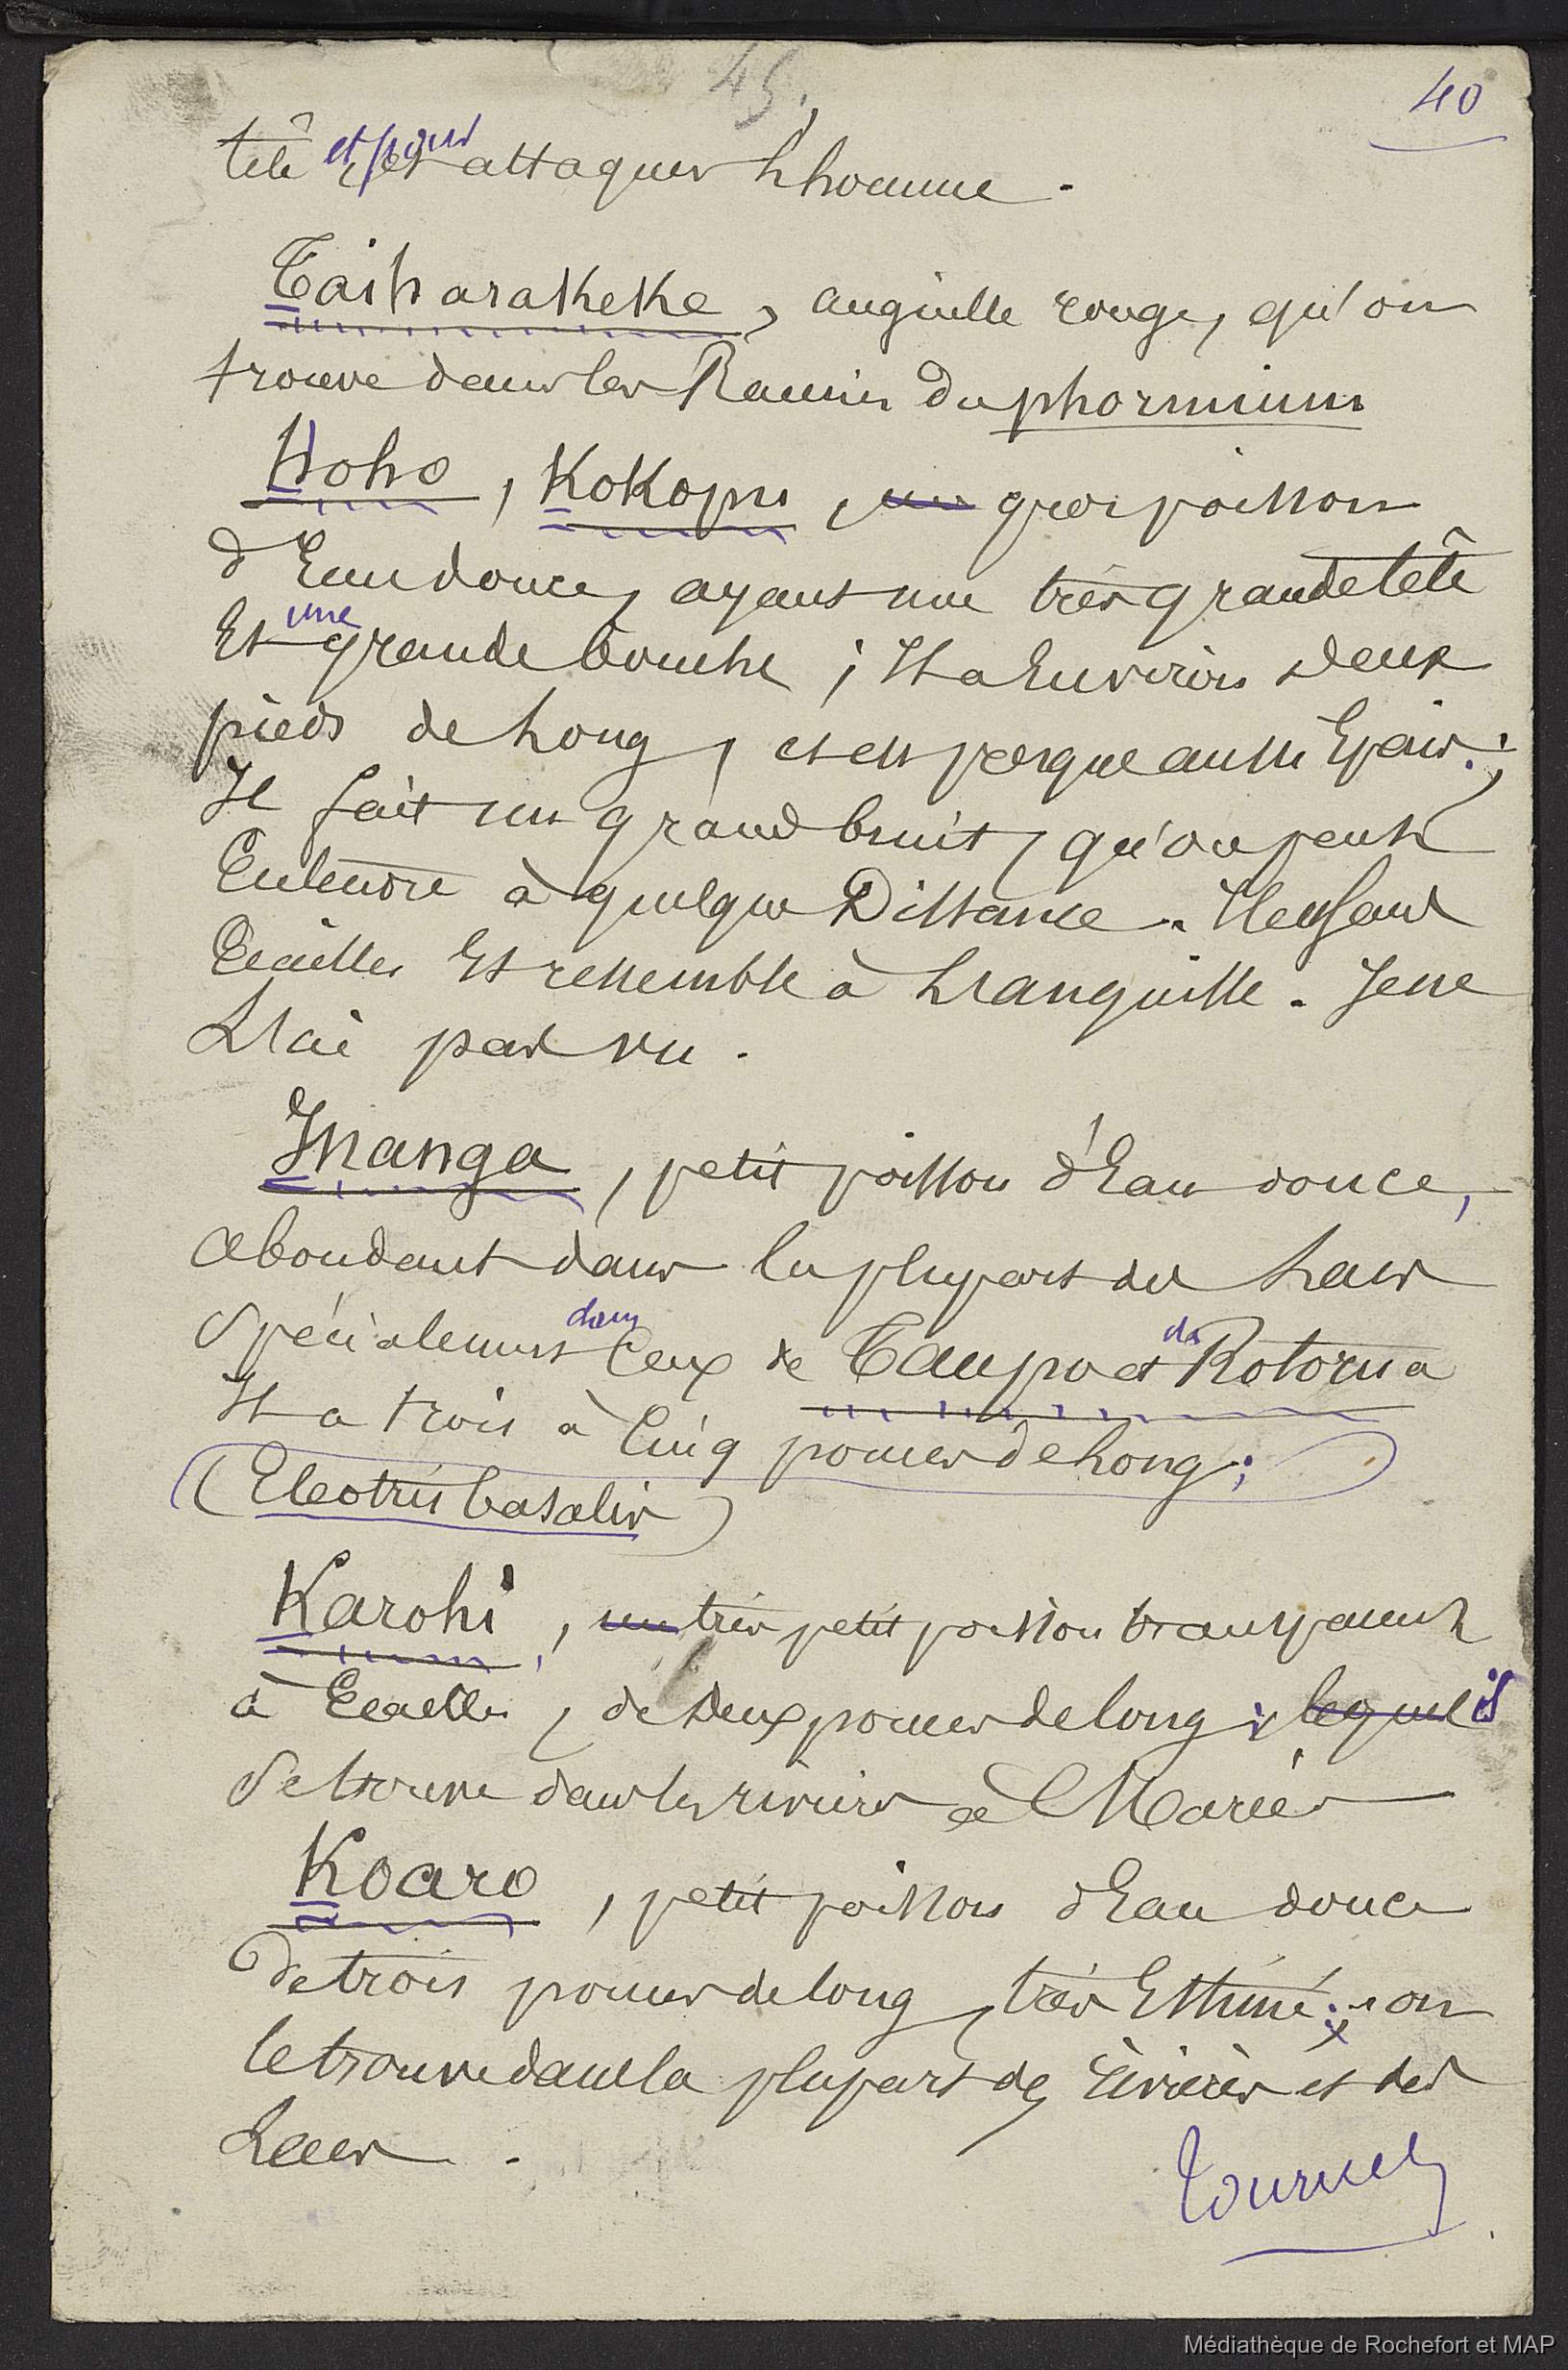 45.
40
tête et pour attaquer l'homme.
Taiharakeke, anguille rouge, qu'on
trouve dans les Racines du phormium
Hoho, Kokopu, un gros poisson
d'Eau douce, ayant une très grande tête
Et une grande bouche ; Il a Environ deux
pieds de long, et est presque aussi Epais ;
Il fait un grand bruit, qu'on peut
Entendre à quelque Distance. Il est sans
Ecailles Et ressemble à l'anguille. Je ne
L'ai pas vu.
Inanga, petit poisson d'Eau douce,
abondant dans la plupart des Lacs
Spécialement dans Ceux de Taupo et de Rotorua
Il a trois à Cinq pouces de Long ;
(Eleotris basalis)
Karohi, un très petit poisson transparent
à Ecailles, de deux pouces de long ; lequel il
Se trouve dans les rivières à Marées
Koaro, petit poisson d'Eau douce
de trois pouces de long, très Estimé ; on
le trouve dans la plupart des rivières et des
Lacs.
Tournez
Médiathèque de Rochefort et MAP